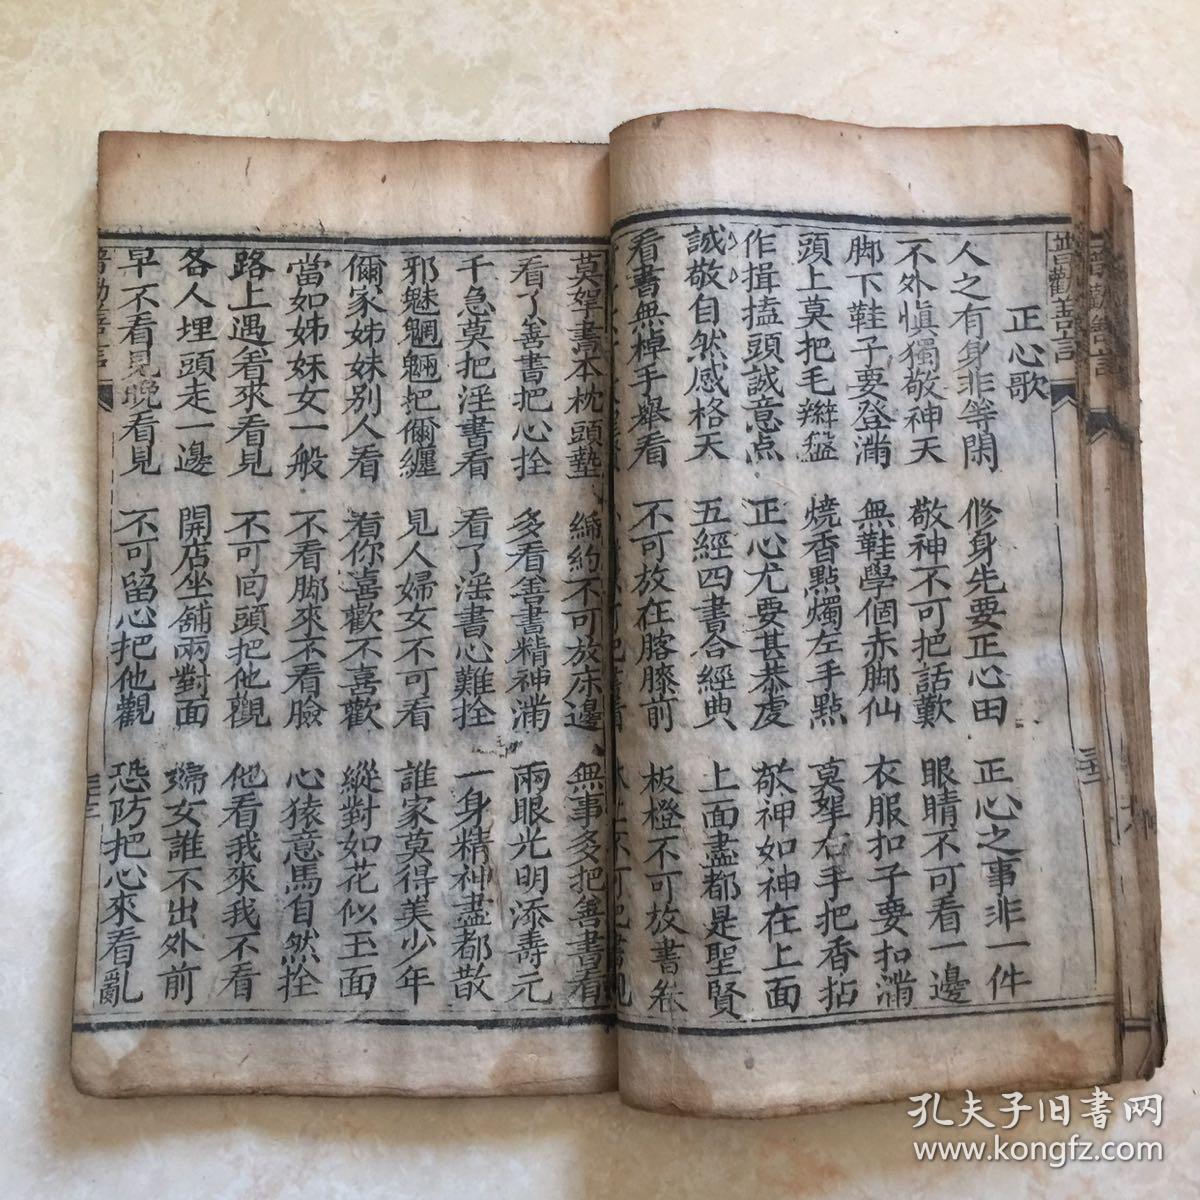 普勸善言
正心歌
人之有身非等閑 修身先要正心田 正心之事非一件
不外慎獨敬神天 敬神不可把話歎 眼睛不可看一邊
脚下鞋子要登滿 無鞋學個赤脚仙 衣服扣子要扣滿
頭上莫把毛辮盤 燒香點燭左手點 莫拏右手把香拈
作揖磕頭誠意点 正心尤要甚恭虔 敬神如神在上面
誠敬自然感格天 五經四書合經典 上面盡都是聖賢
看書無棹手舉看 不可放在膝前 板櫈不可放書卷
莫拏書本枕頭墊 編約不可放床邊 無事多把善書看
看了善書把心拴 多看善書精神滿 兩眼光明添壽元
千急莫把淫書看 看了淫書心難拴 一身精神盡都散
邪魅魍魎把爾纏 見人婦女不可看 誰家莫得美少年
爾家姊妹别人看 看你喜歡不喜歡 縱對如花似玉面
當如姊妹女一般 不看脚來不看臉 心猿意馬自然拴
路上遇着來看見 不可回頭把他觀 他看我來我不看
各人埋頭走一邊 開店坐舖兩對面 婦女誰不出外前
早不看見晚看見 不可留心把他觀 恐防把心來看亂
普勸善言
孔夫子旧書网
www.kongfz.com